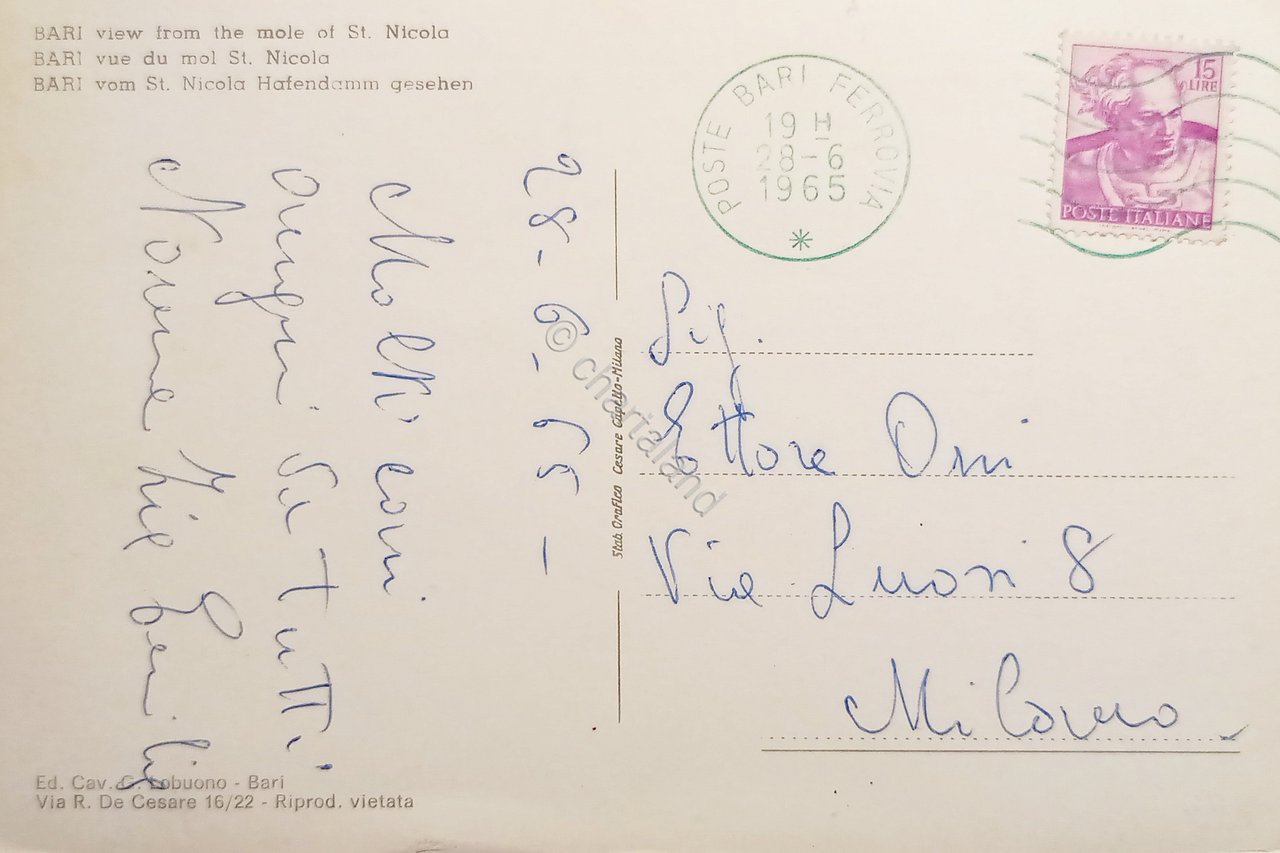 BARI view from the mole of St. Nicola
BARI vue du mol St. Nicola
BARI vom St. Nicola Hafendamm gesehen
28-6-65-
Molti cari
auguri da tutti
Nonna Zie
POSTE BARI FERROVIA
19 H
28-6
1965
15
LIRE
POSTE ITALIANE
Sig.
Ettore
Via 8
Milano
Stab. Grafico Cesare Capello-Milano
© chartaland
Ed. Cav. G. Lobuono - Bari
Via R. De Cesare 16/22 - Riprod. vietata